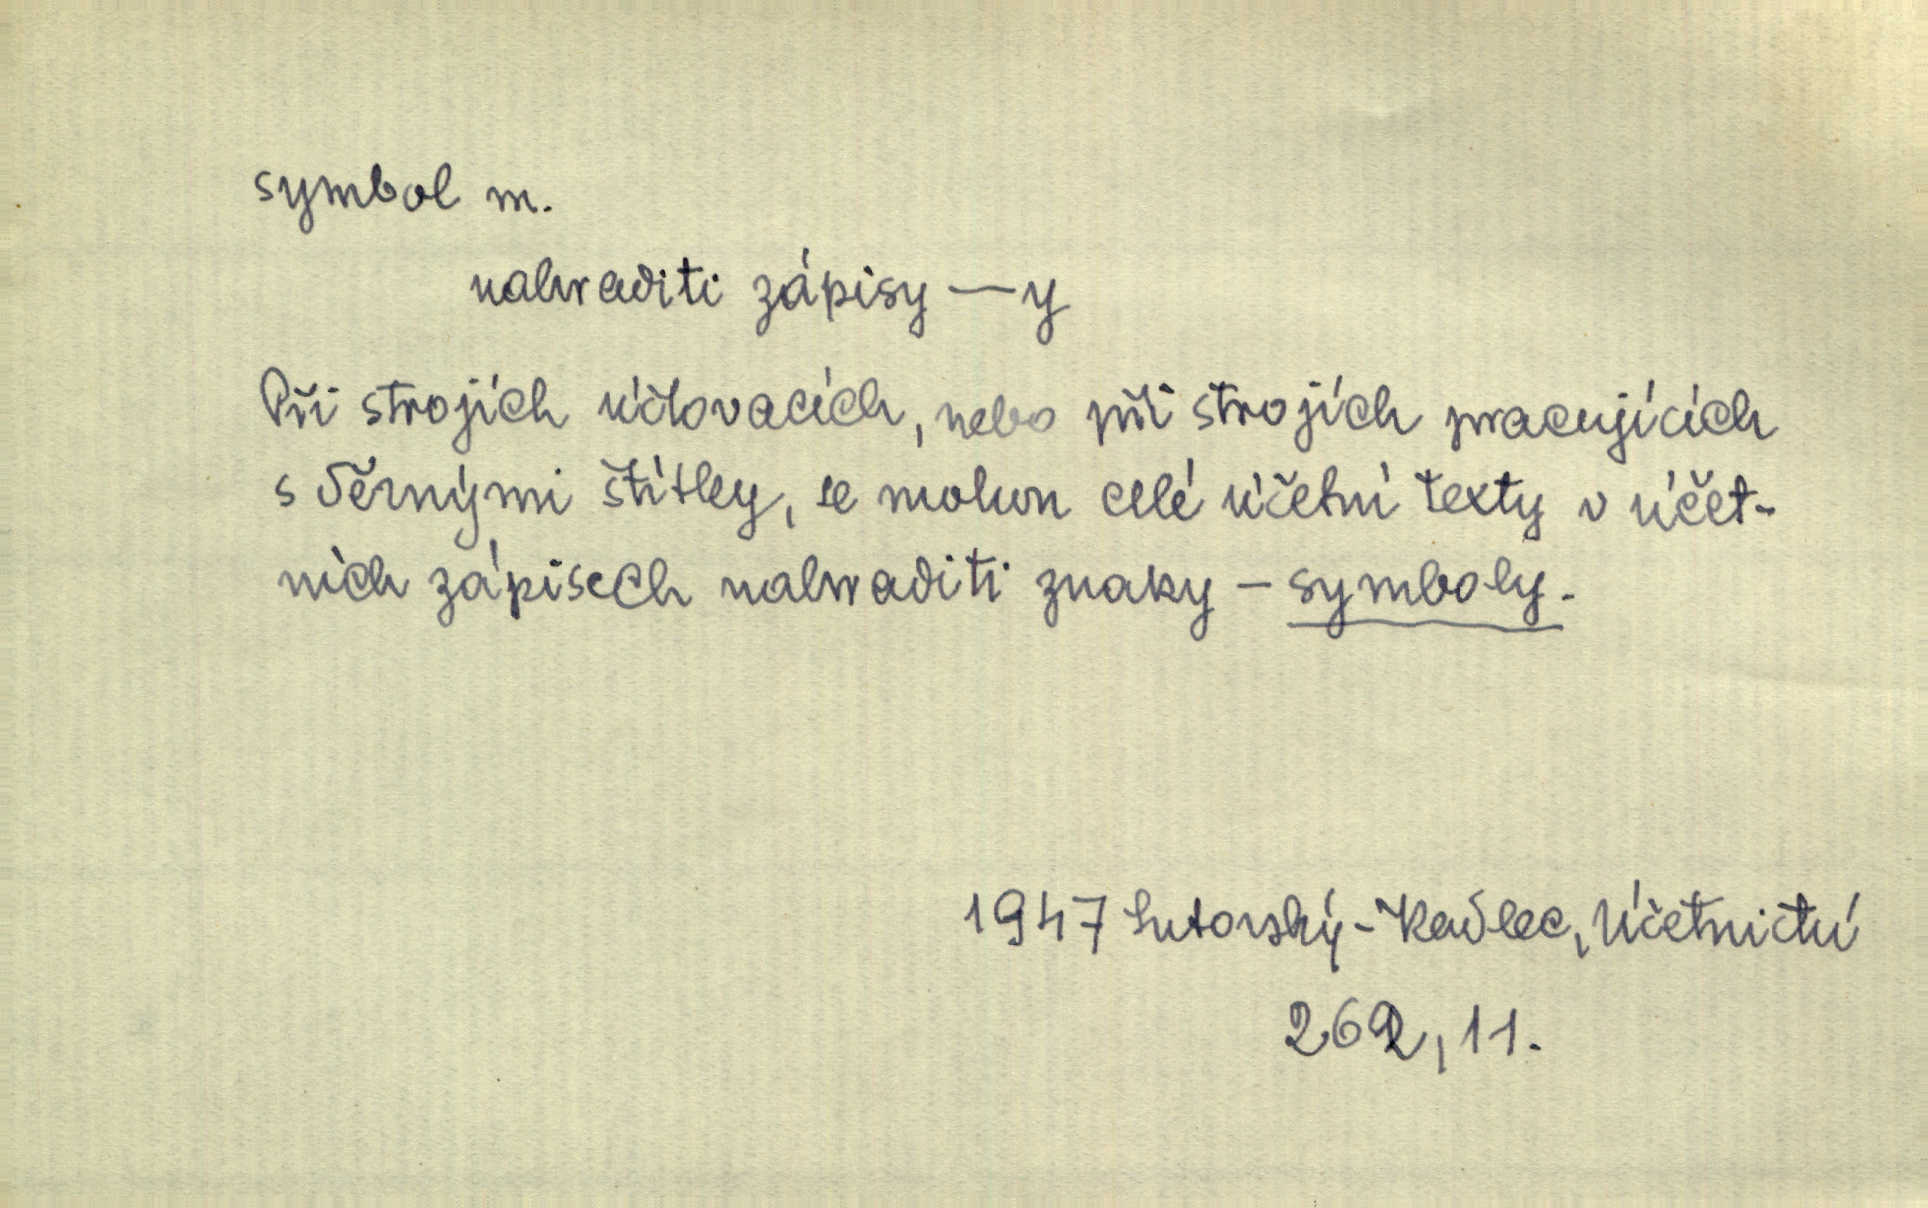 symbol m.
nahraditi zápisy —y
Při strojích účtovacích, nebo při strojích pracujících
s děrnými štítky, se mohou celé účetní texty v účet-
ních zápisech nahraditi znaky – symboly.
1947 Lutovský-Kadlec, Účetnictví
262, 11.